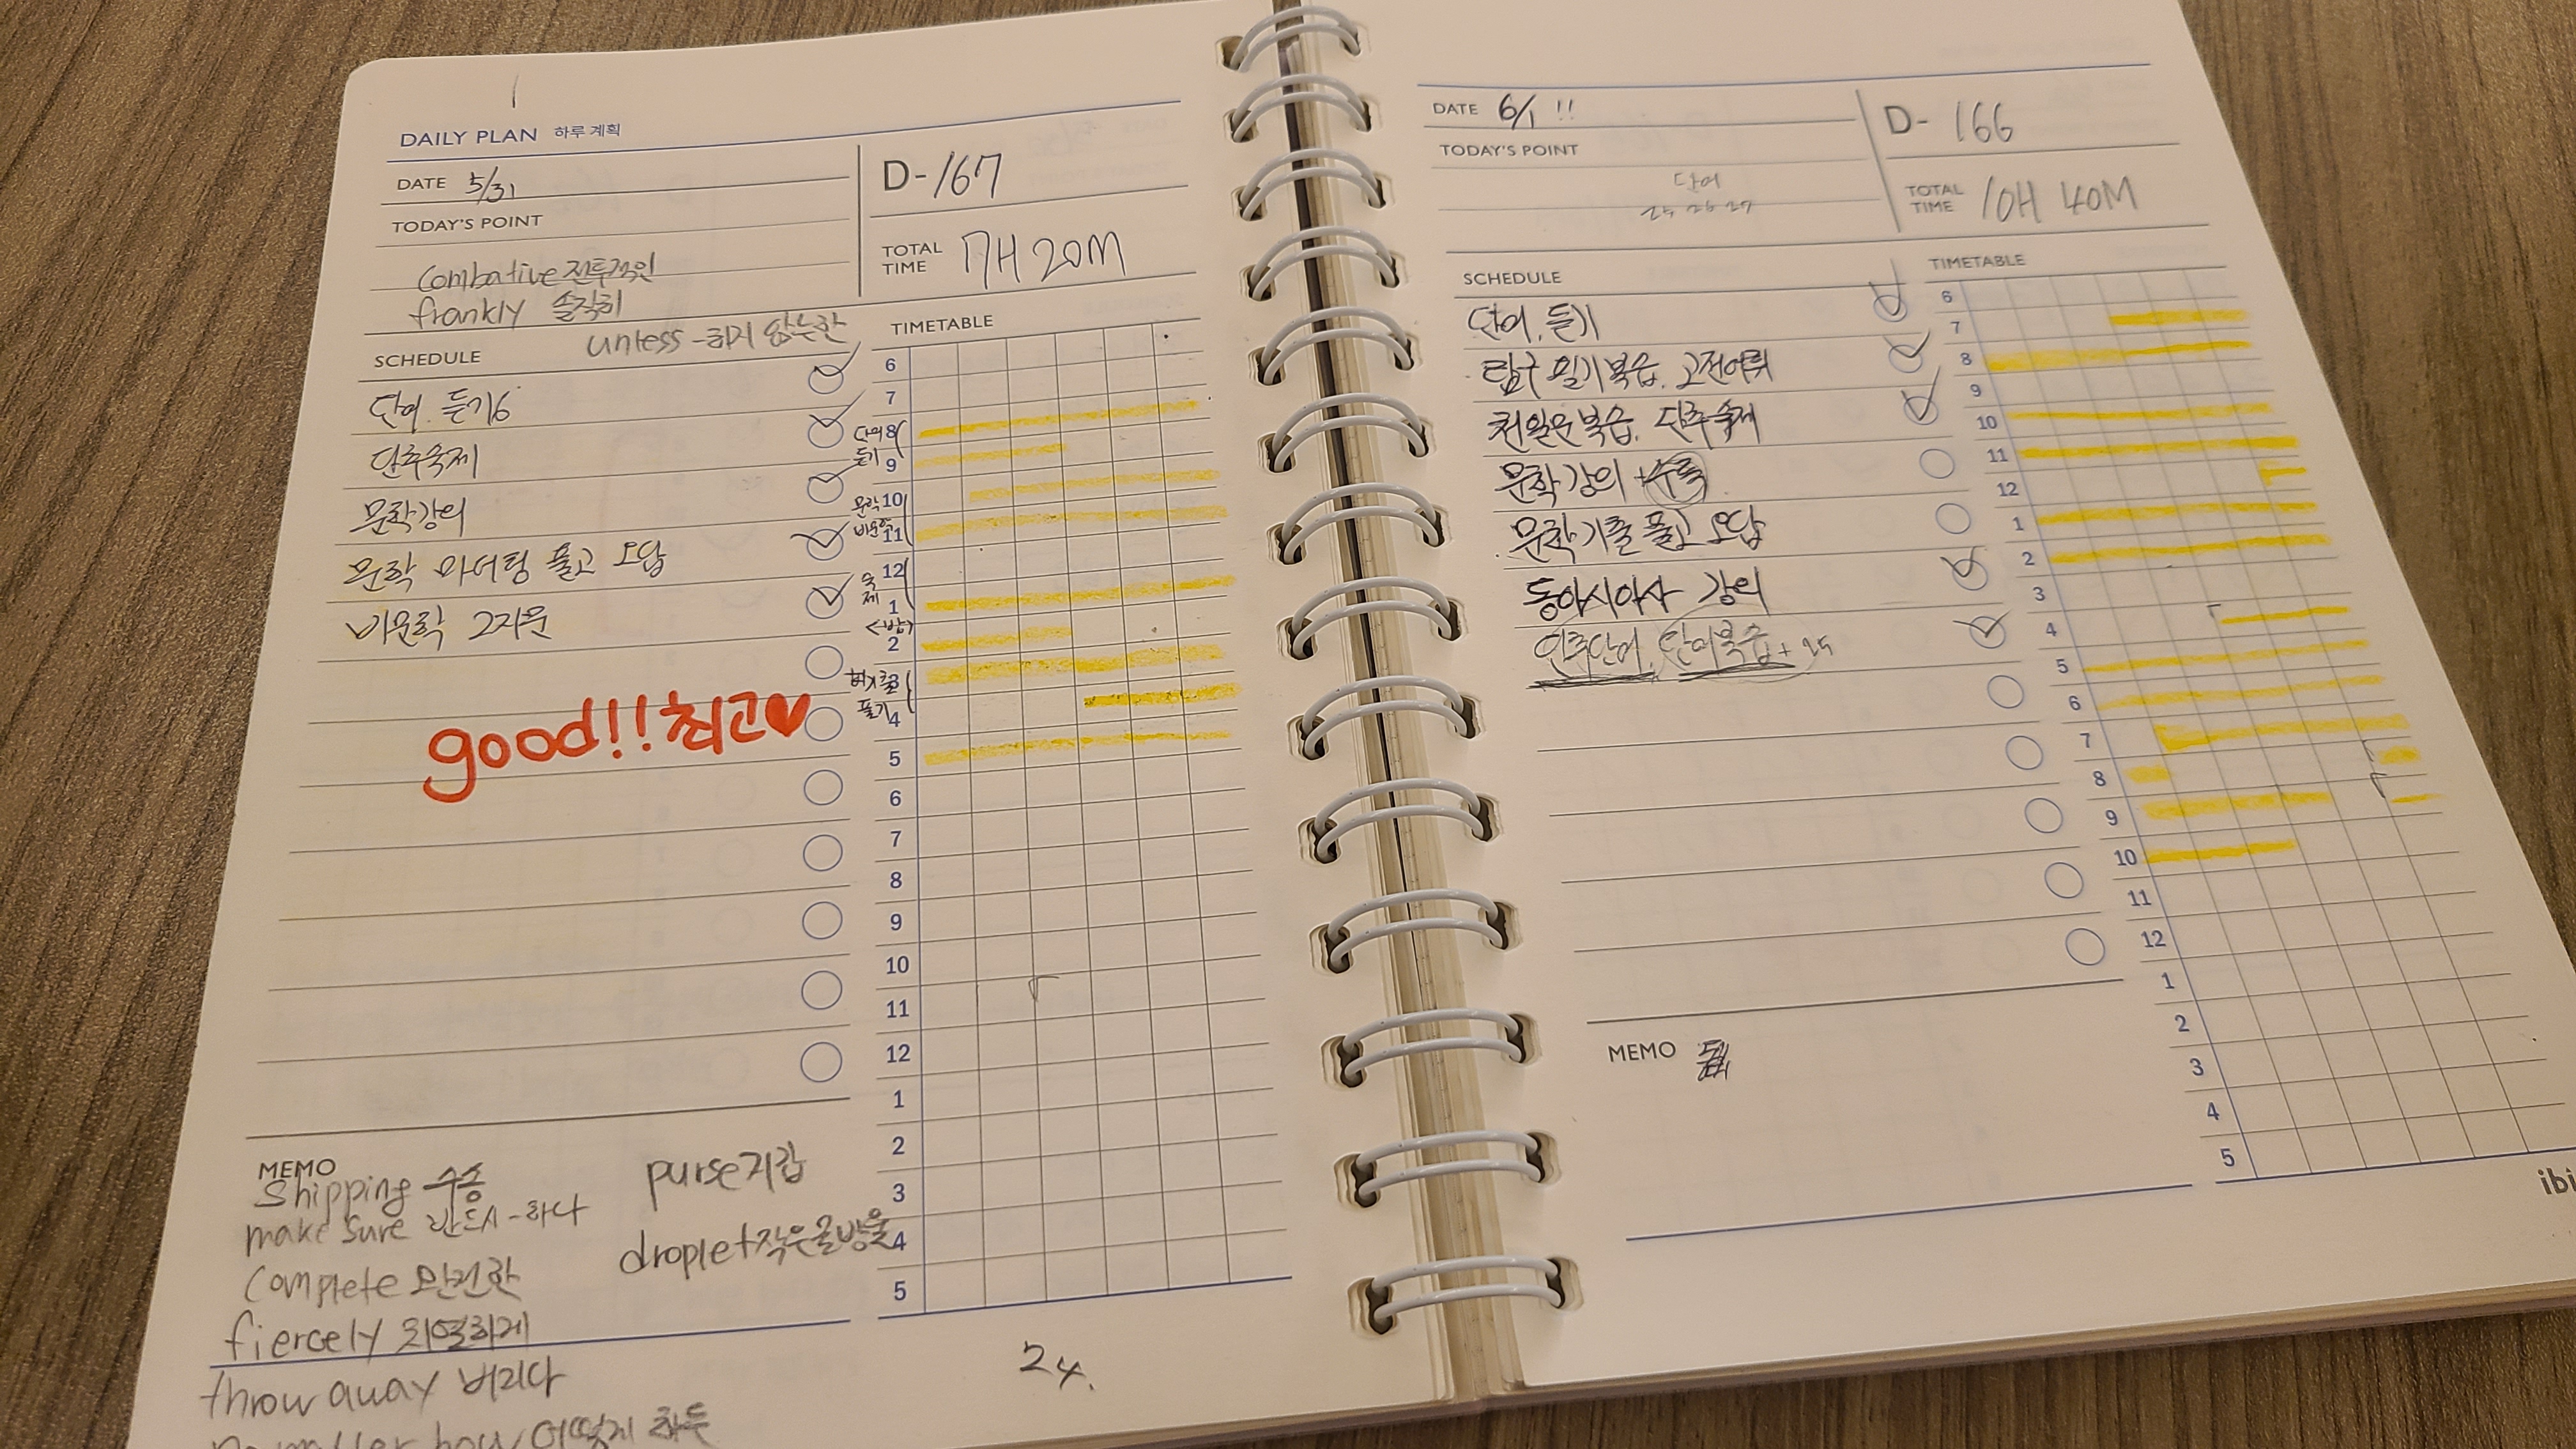 DAILY PLAN 하루 계획
DATE 5/31
D-167
TODAY'S POINT
TOTAL TIME 7H 20M
combative 전투적인
frankly 솔직히
unless -하지 않는한
SCHEDULE
단어, 듣기6
단추숙제
문학강의
문학 마더텅 풀고 오답
비문학 2지문
good!!최고♥
TIMETABLE
6
7
8
단어
듣기
9
문학10
비문학
11
숙제
12
1
<밥>
2
3
풀기
4
5
6
7
8
9
10
11
12
1
2
3
4
5
MEMO
shipping 수송
make sure 반드시-하다
complete 완전한
fiercely 치열하게
throw away 버리다
no matter how 어떻게 하든
purse지갑
droplet작은물방울
24.
DATE 6/1 !!
D- 166
TODAY'S POINT
단어
25 26 27
TOTAL TIME 10H 40M
SCHEDULE
단어, 듣기
탐구 필기복습, 고전어휘
천일문복습, 단추숙제
문학강의 +수특
문학기출 풀고 오답
동아시아사 강의
단어복습 + 25
TIMETABLE
6
7
8
9
10
11
12
1
2
3
4
5
6
7
8
9
10
11
12
1
2
3
4
5
MEMO
ibi